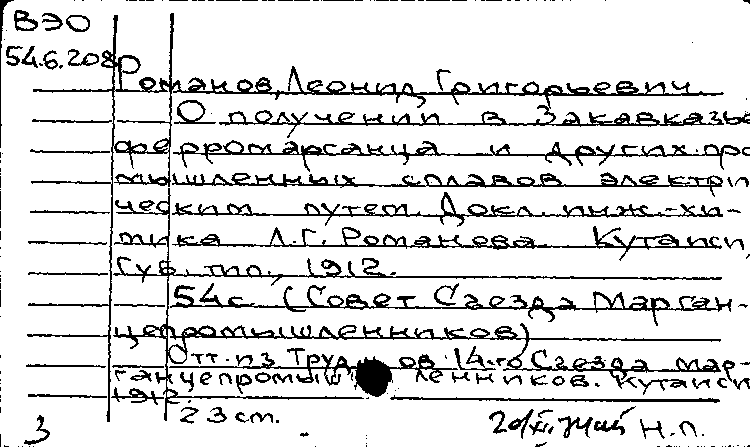 ВЭО
54.6.208
Романов, Леонид Григорьевич
О получении в Закавказье
ферромарганца и других про
мышленных сплавов электри
ческим путем. Докл. инж.-хи-
мика Л.Г. Романова. Кутаиси,
Губ. тип., 1912.
54 с. (Совет Съезда Марган-
цепромышленников)
Отт. из Трудов 14-го Съезда мар-
ганцепромышленников. Кутаиси
1912.
23 см.
3
Н.П.